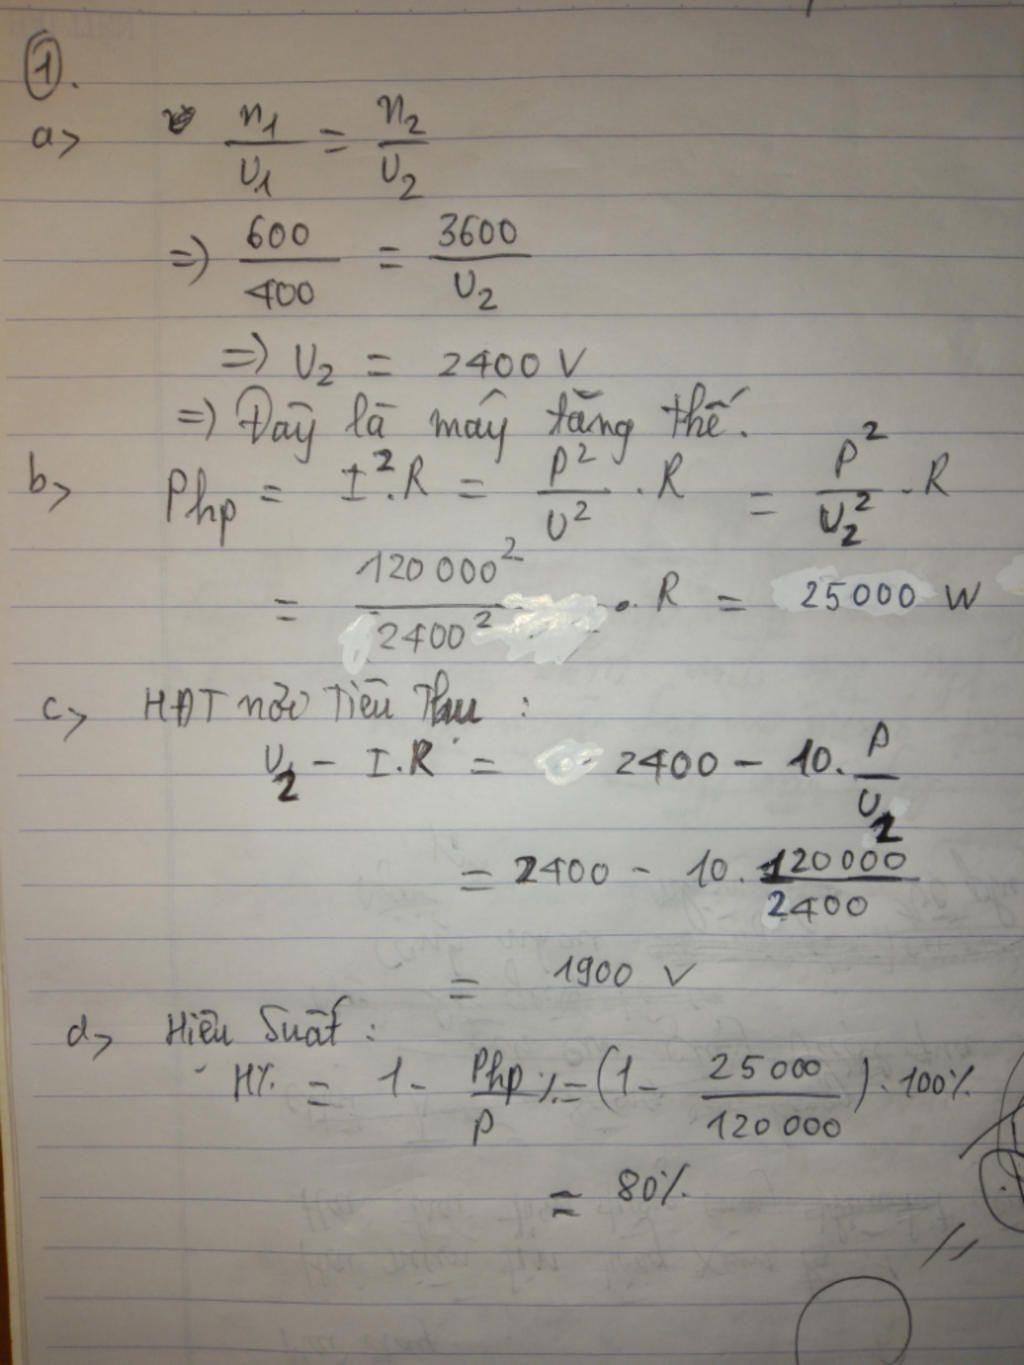 ①.
a> n1/U1 = n2/U2
=> 600/400 = 3600/U2
=> U2 = 2400 V
=> Đây là máy tăng thế.
b> Php = I².R = P²/U² . R = P²/U2² . R
= 120000²/2400² . R = 25000 W
c> HĐT nơi Tiêu Thụ :
U2 - I.R = 2400 - 10. P/U2
= 2400 - 10. 120000/2400
= 1900 V
d> Hiệu Suất :
H% = 1 - Php/P % = (1 - 25000/120000) . 100%
= 80%